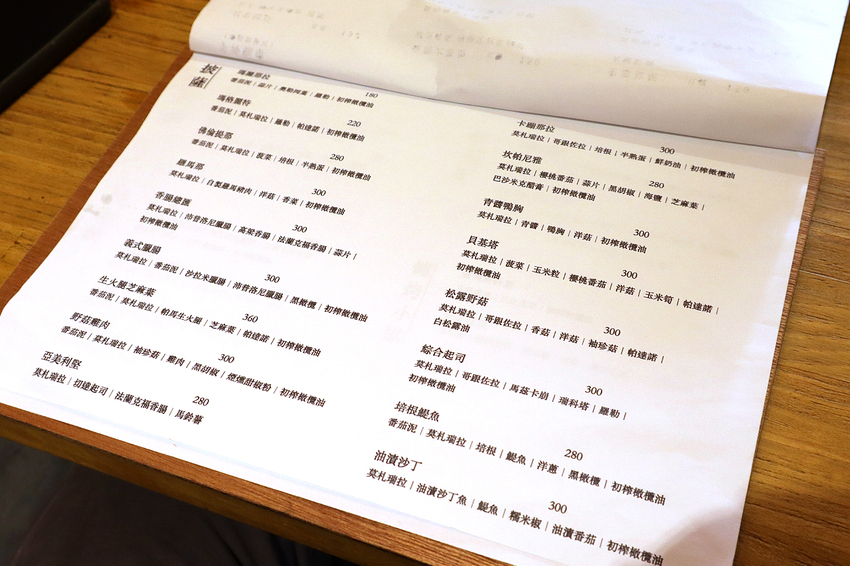 披薩
瑪麗那拉 180
番茄泥｜蒜片｜奧勒岡葉｜羅勒｜初榨橄欖油
瑪格麗特 220
番茄泥｜莫札瑞拉｜羅勒｜帕達諾｜初榨橄欖油
佛倫提那 280
番茄泥｜莫札瑞拉｜菠菜｜培根｜半熟蛋｜初榨橄欖油
羅馬那 300
莫札瑞拉｜自製羅馬豬肉｜洋菇｜香菜｜初榨橄欖油
香腸總匯 300
莫札瑞拉｜沛普洛尼臘腸｜高粱香腸｜法蘭克福香腸｜蒜片｜
初榨橄欖油
義式臘腸 300
莫札瑞拉｜番茄泥｜沙拉米臘腸｜沛普洛尼臘腸｜黑橄欖｜初榨橄欖油
生火腿芝麻葉 360
番茄泥｜莫札瑞拉｜帕瑪生火腿｜芝麻葉｜帕達諾｜初榨橄欖油
野菇雞肉 300
番茄泥｜莫札瑞拉｜袖珍菇｜雞肉｜黑胡椒｜煙燻甜椒粉｜初榨橄欖油
亞美利堅 280
莫札瑞拉｜切達起司｜法蘭克福香腸｜馬鈴薯
卡繃那拉 300
莫札瑞拉｜哥跟佐拉｜培根｜半熟蛋｜鮮奶油｜初榨橄欖油
坎帕尼雅 280
莫札瑞拉｜櫻桃番茄｜蒜片｜黑胡椒｜海鹽｜芝麻葉｜
巴沙米克醋膏｜初榨橄欖油
青醬鴨胸 300
莫札瑞拉｜青醬｜鴨胸｜洋菇｜初榨橄欖油
貝基塔 300
莫札瑞拉｜菠菜｜玉米粒｜櫻桃番茄｜洋菇｜玉米筍｜帕達諾｜
初榨橄欖油
松露野菇 300
莫札瑞拉｜哥跟佐拉｜香菇｜洋菇｜袖珍菇｜帕達諾｜
白松露油
綜合起司 300
莫札瑞拉｜哥跟佐拉｜馬茲卡崩｜瑞科塔｜羅勒｜
初榨橄欖油
培根鯷魚 280
番茄泥｜莫札瑞拉｜培根｜鯷魚｜洋蔥｜黑橄欖｜初榨橄欖油
油漬沙丁 300
莫札瑞拉｜油漬沙丁魚｜鯷魚｜糯米椒｜油漬番茄｜初榨橄欖油